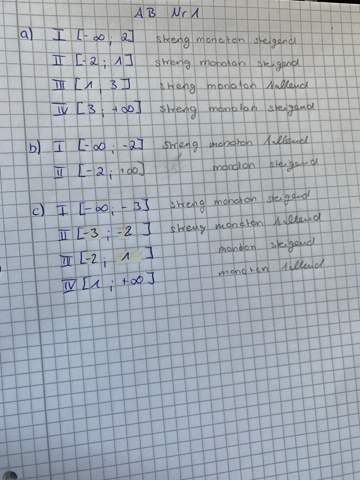 AB Nr 1
a) I [-∞ ; 2] streng monoton steigend
II [-2 ; 1] streng monoton steigend
III [1 , 3] streng monoton fallend
IV [3 ; +∞] streng monoton steigend
b) I [-∞ ; -2] streng monoton fallend
II [-2 ; +∞] monoton steigend
c) I [-∞ ; -3] streng monoton steigend
II [-3 ; -2] streng monoton fallend
III [-2 , 1] monoton steigend
IV [1 ; +∞] monoton fallend